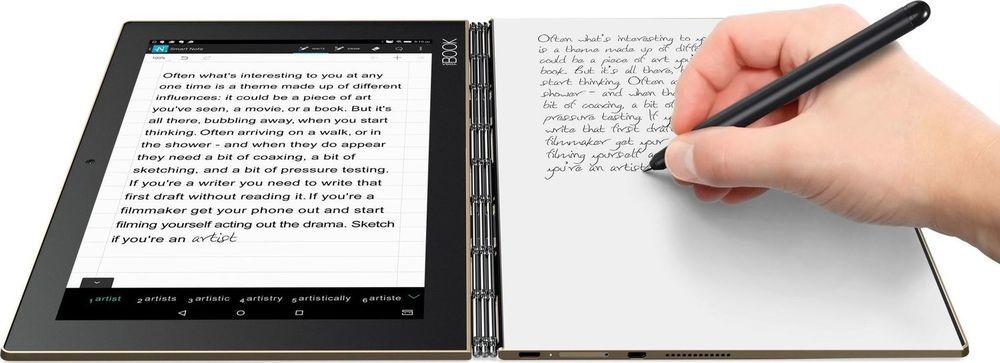 Smart Note
WRITE
DRAW
100%
Often what's interesting to you at any
one time is a theme made up of different
influences: it could be a piece of art
you've seen, a movie, or a book. But it's
all there, bubbling away, when you start
thinking. Often arriving on a walk, or in
the shower - and when they do appear
they need a bit of coaxing, a bit of
sketching, and a bit of pressure testing.
If you're a writer you need to write that
first draft without reading it. If you're a
filmmaker get your phone out and start
filming yourself acting out the drama. Sketch
if you're an artist
1 artist 2 artists 3 artistic 4 artistry 5 artistically 6 artiste
BOOK
Often what's interesting to
is a theme made up of
could be a piece of art
book. But it's all there,
start thinking. Often
shower - and when
bit of coaxing, a bit of
pressure testing. If
write that first
filmmaker get your
filming yourself
you're an artist